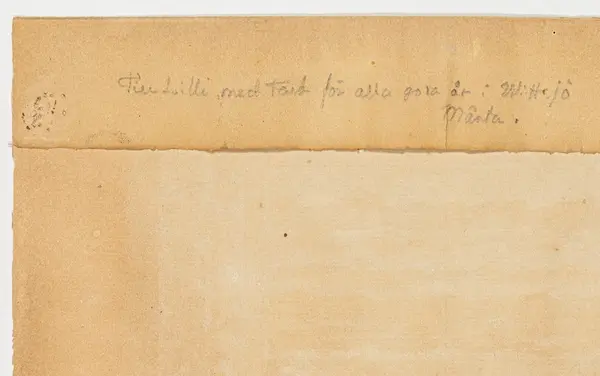 Till Lilli med Tack för alla goda år i Wittsjö
Märta.